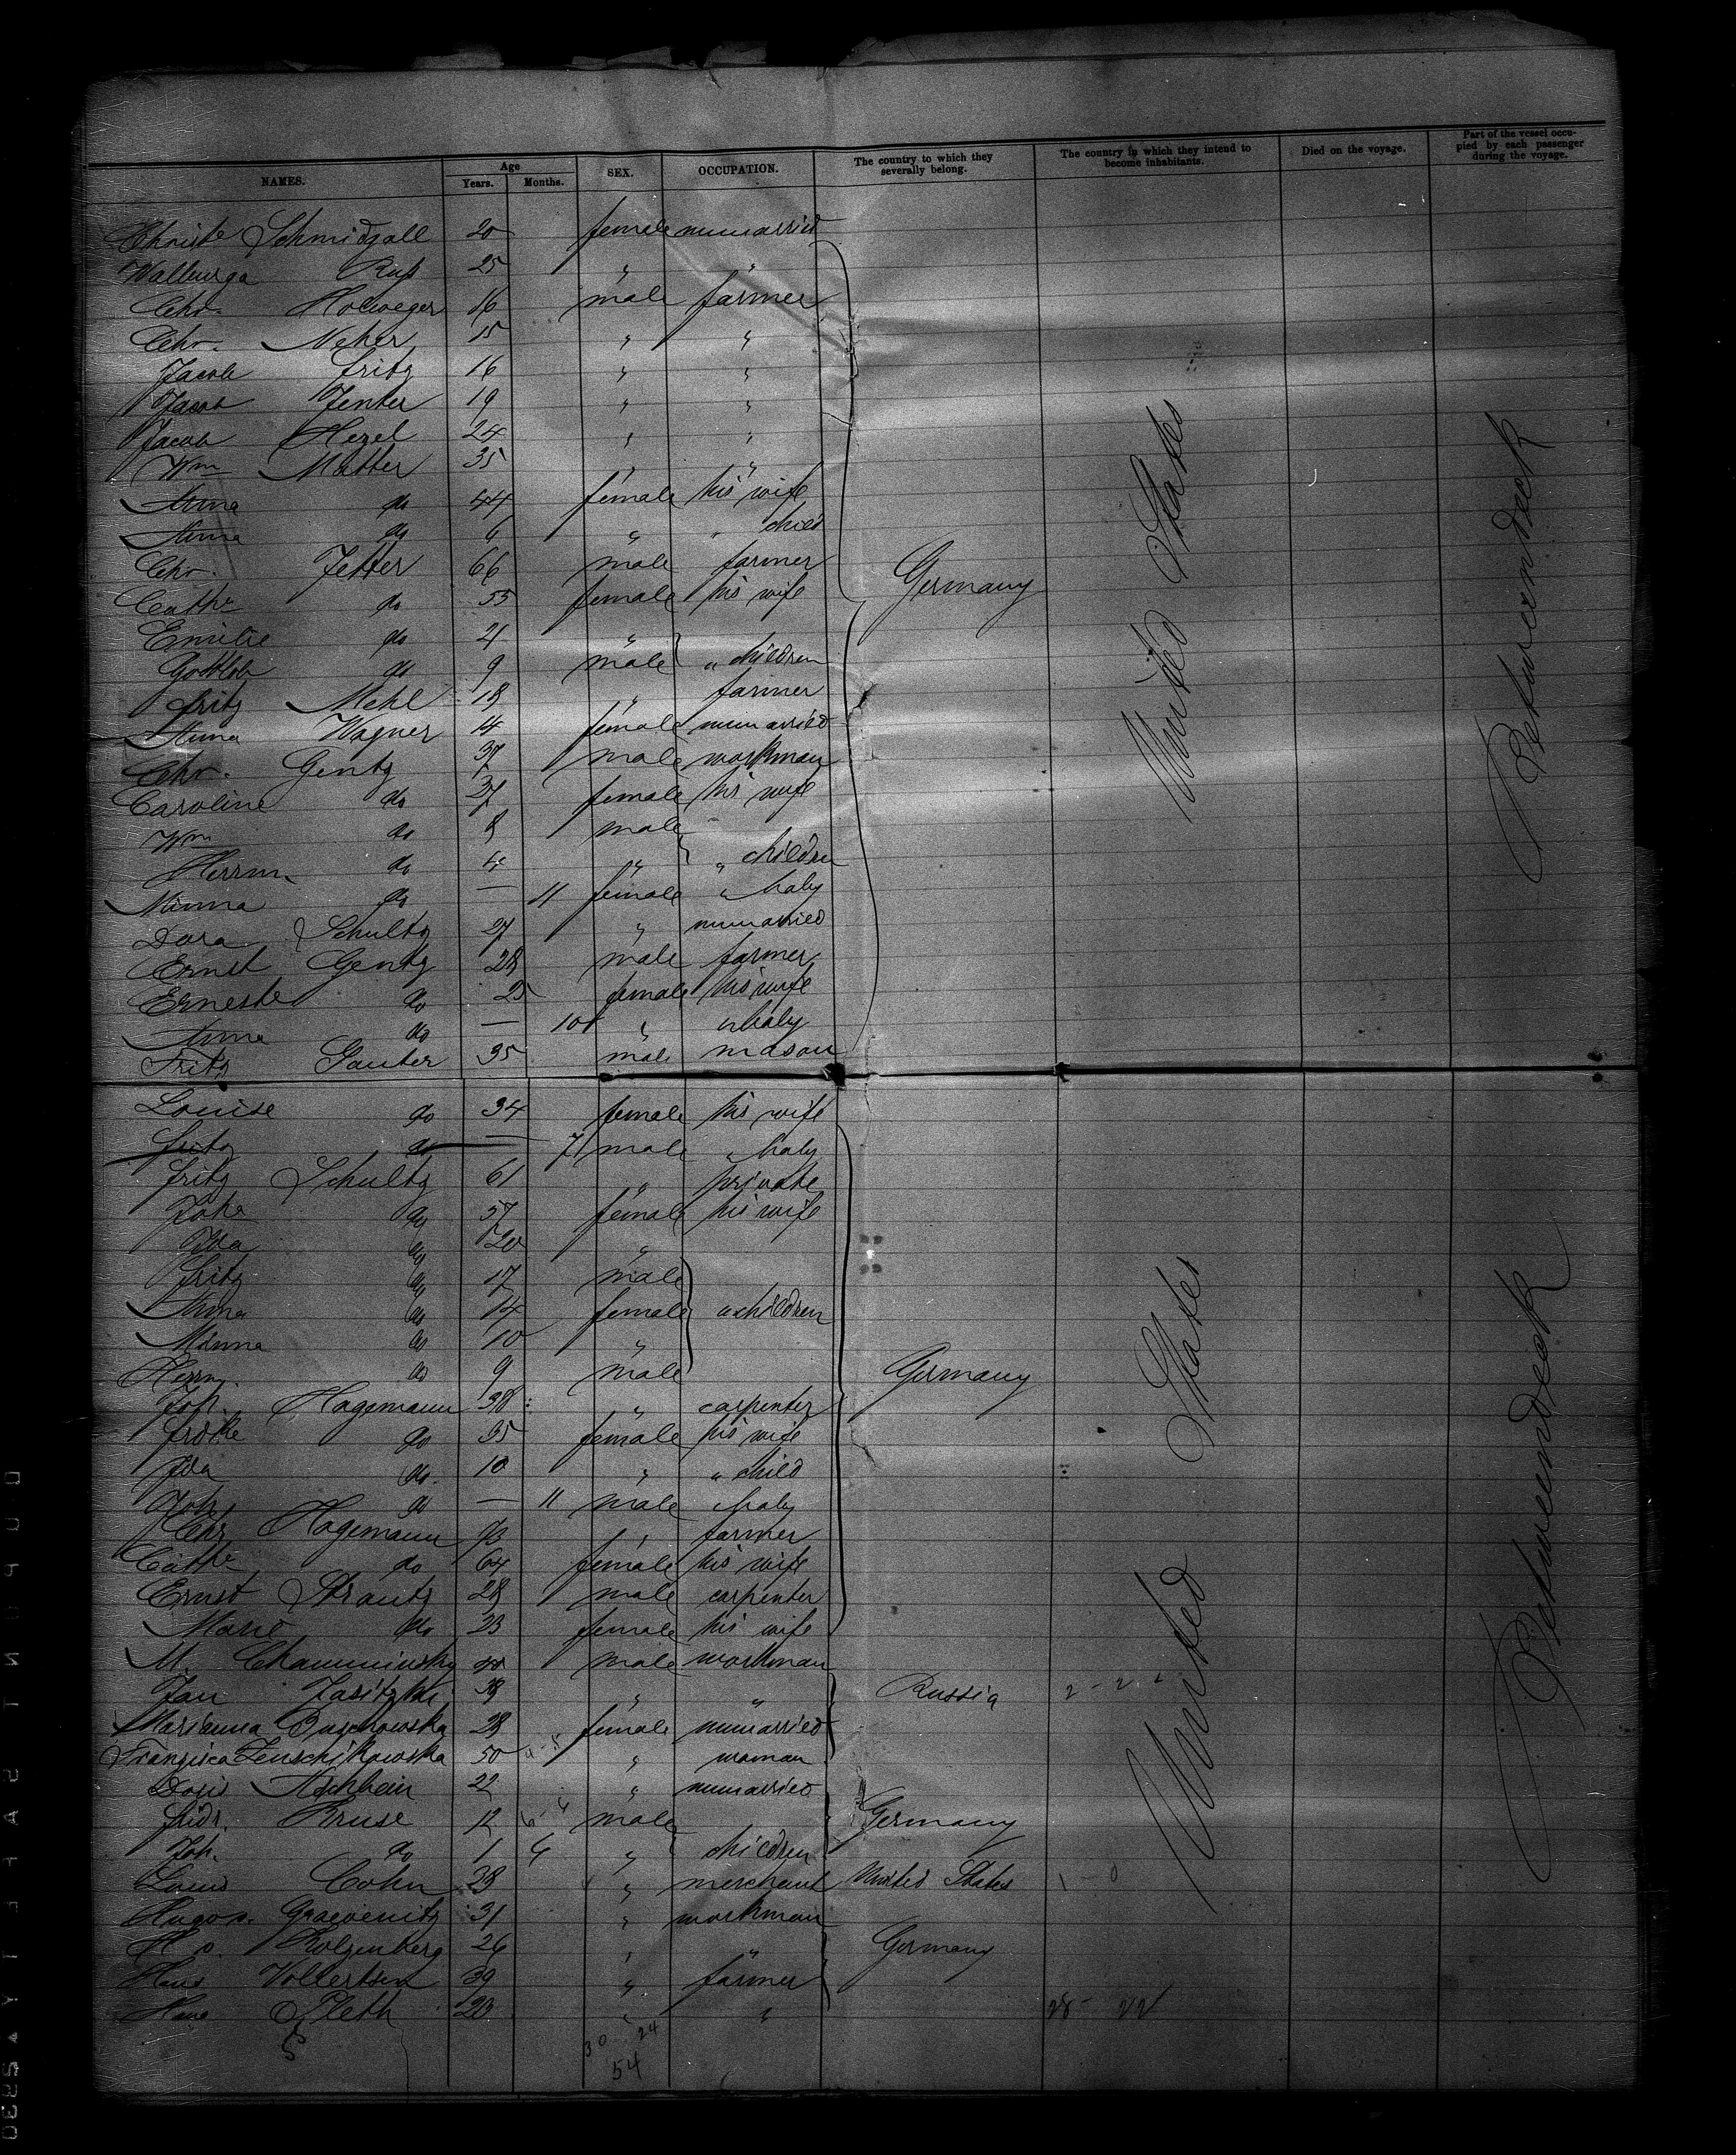 NAMES. Age Years. Months. SEX. OCCUPATION. The country to which they severally belong. The country in which they intend to become inhabitants. Died on the voyage. Part of the vessel occupied by each passenger during the voyage.
Christe Schmidgall 20 female unmarried
Walburga Ruß 25 " "
Chr. Holweger 16 male farmer
Chr. Neher 15 " "
Jacob Fritz 16 " "
Jacob Jenter 19 " "
Jacob Hezel 24 " "
Wm Matter 35 " "
Anna do 44 female his wife
Anna do 6 " " child
Chr. Jetter 66 male farmer
Cathe do 55 female his wife
Germany
Emilie do 21 "
Gottlob do 9 male " children
Fritz Mehl 18 " farmer
Anna Wagner female unmarried
Chr. Gentz 37 male workman
Caroline do 37 female his wife
Wm do 8 male
Herrm. do 4 " " children
Minna do — 11 female " baby
Dora Schultz 27 " unmarried
Ernst Gentz 28 male farmer
Erneste do 25 female his wife
Anna do — 10 " " baby
Fritz Ganter 35 male mason
United States
Betweendeck
Louise do 34 female his wife
Fritz do — 7 male " baby
Fritz Schultz 61 " private
Johe do 57 female his wife
Ida do 20 "
Fritz do 17 male
Anna do 14 female " children
Minna do 10 "
Herrm. do 9 male
Germany
Joh. Hagemann 38 " carpenter
Fridke do 35 female his wife
Ida do. 10 " " child
Joh. do — 11 male " baby
Chr. Hagemann " farmer
Cathe do 64 female his wife
Ernst Strautz 28 male carpenter
Marie do 23 female his wife
M. Chamminsky male workman
Jan Jasitzki 38 " " Russia
Marianna Buschowska 28 female unmarried
Fransisca Zenschikowska 50 " woman
Doris Aschheim 22 " unmarried
Fridr. Kruse 12 male Germany
Joh. do 1 6 " children
Louis Cohn 28 " merchant United States 1 - 0
Hugo v. Graevenitz 31 " workman
H. v. Bolzenberg 26 " " Germany
Hans Vollertsen 39 " farmer
Hans Pleth 20 " " 28 - 22
United States
Betweendeck
5
30 - 24
54